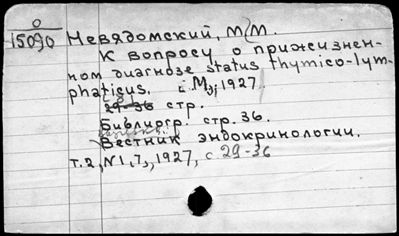 0
15090 Невядомский, М.М.
К вопросу о прижизнен-
ном диагнозе status thymico-lym-
phaticus. М., 1927.
29-36 стр.
Библиогр. стр. 36.
Вестник эндокринологии,
т.2, №1, 1927, с 29-36